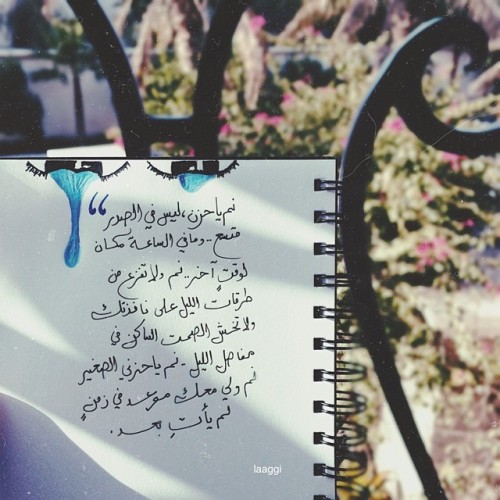 نم يا حزن، ليس في الصدر
متسع .. وما في الساعة مكان
لوقتٍ آخر .. نم ولا تفزع من
طرقات الليل على نافذتك
ولا تخش الصمت الساكن في
مفاصل الليل .. نم يا حزني الصغير
نم ولي معك موعد في زمنٍ
لم يأتِ بعد .
laaggi